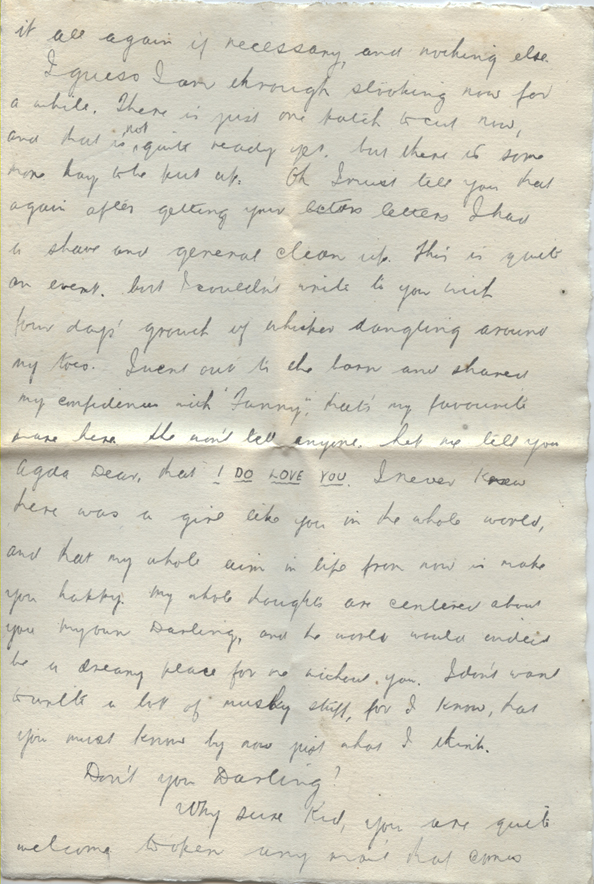 it all again if necessary, and nothing else.
I guess I am through stooking now for
a while. There is just one patch to cut now,
and that is not quite ready yet. but there is some
more hay to be put up. Oh I must tell you that
again after getting your letters I had
a shave and general clean up. This is quite
an event. but I couldn't write to you with
four days' growth of whisker dangling around
my toes. I went out to the barn and shared
my confidences with "Fanny", that's my favourite
mare here. She won't tell anyone. Let me tell you
Agda Dear, that I DO LOVE YOU. I never knew
there was a girl like you in the whole world,
and that my whole aim in life from now is make
you happy. My whole thoughts are centered about
you my own Darling, and the world would indeed
be a dreamy place for me without you. I don't want
to write a lot of mushy stuff, for I know, that
you must know by now just what I think.
Don't you Darling?
Why sure Kid, you are quite
welcome to open any mail that comes